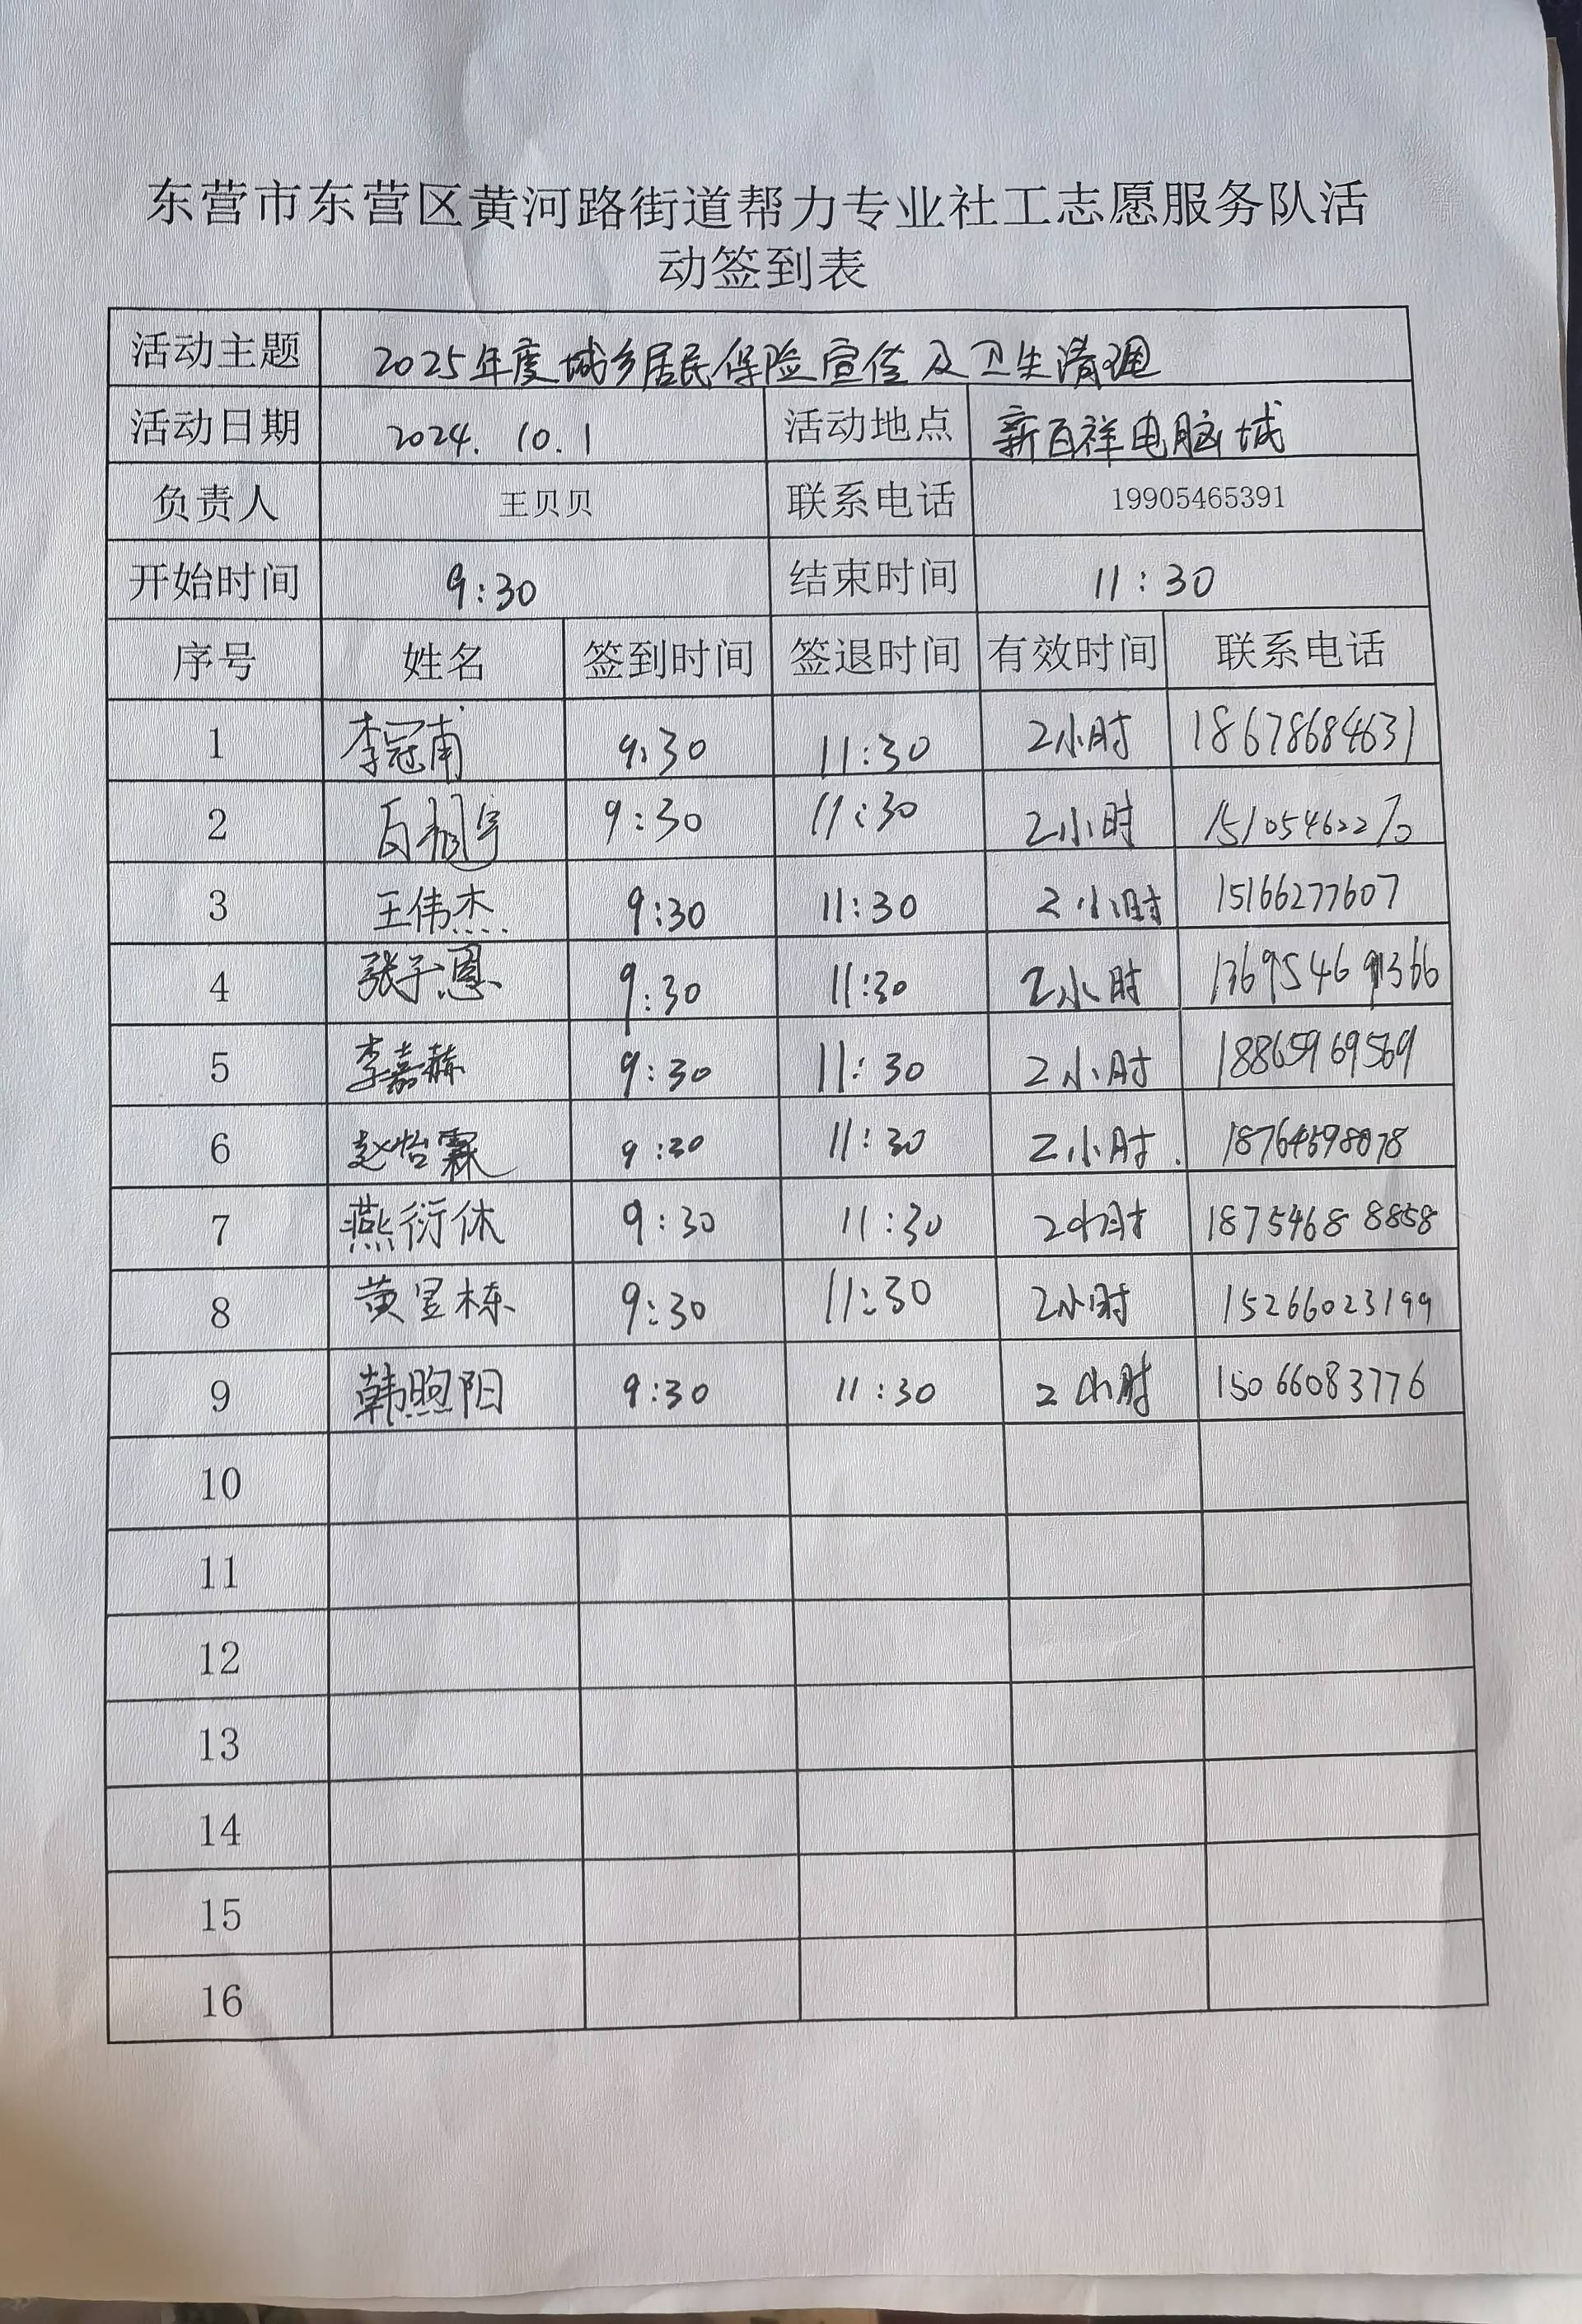 东营市东营区黄河路街道帮力专业社工志愿服务队活
动签到表
活动主题 2025年度城乡居民保险宣传及卫生清理
活动日期 2024.10.1 活动地点 新百祥电脑城
负责人 王贝贝 联系电话 19905465391
开始时间 9:30 结束时间 11:30
序号 姓名 签到时间 签退时间 有效时间 联系电话
1 李冠甫 9:30 11:30 2小时 18678684631
2 9:30 11:30 2小时 15105462270
3 王伟杰 9:30 11:30 2小时 15166277607
4 张子恩 9:30 11:30 2小时
5 李嘉赫 9:30 11:30 2小时 18865969569
6 赵怡霖 9:30 11:30 2小时
7 燕衍休 9:30 11:30 2小时 18754688858
8 黄昱栋 9:30 11:30 2小时 15266023199
9 韩煦阳 9:30 11:30 2小时 15066083776
10
11
12
13
14
15
16